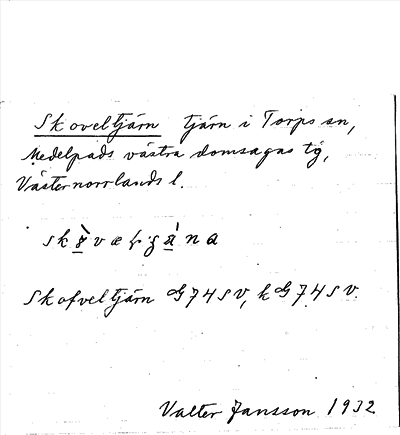 Skoveltjärn tjärn i Torps sn,
Medelpads västra domsagas tg,
Västernorrlands l.
Skofveltjärn G74SV, k G74SV.
Valter Jansson 1932